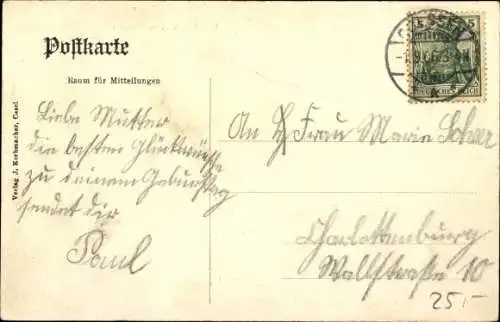 Postkarte
Raum für Mitteilungen
Verlag J. Kerbmacher, Cassel.
CASSEL
5
DEUTSCHES REICH
Liebe Mutter
die besten Glückwünsche
zu deinem Geburtstag
sendet dir
Paul
An H Frau Marie
Charlottenburg
Wallstraße 10
25.-